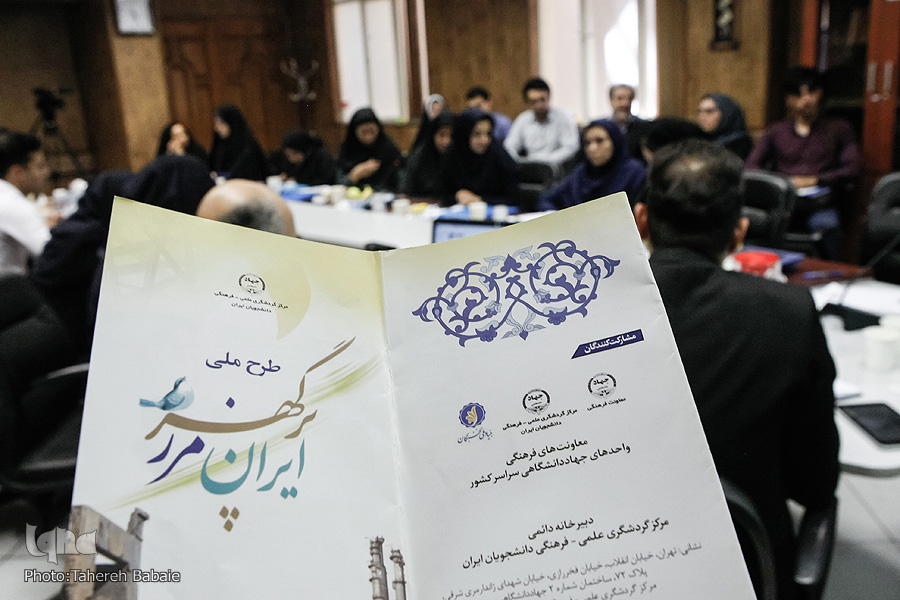 جهاد
مرکز گردشگری علمی - فرهنگی
دانشجویان ایران
طرح ملی
ایران مرز پر گهر
مشارکت‌کنندگان
جهاد
معاونت فرهنگی
جهاد
مرکز گردشگری علمی - فرهنگی
دانشجویان ایران
بنیاد ملی نخبگان
معاونت‌های فرهنگی
واحدهای جهاددانشگاهی سراسر کشور
دبیرخانه دائمی
مرکز گردشگری علمی - فرهنگی دانشجویان ایران
نشانی: تهران، خیابان انقلاب، خیابان فخررازی، خیابان شهدای ژاندارمری شرقی
پلاک ۷۲، ساختمان شماره ۲ جهاددانشگاهی
مرکز گردشگری علمی
iqna
Photo:Tahereh Babaie